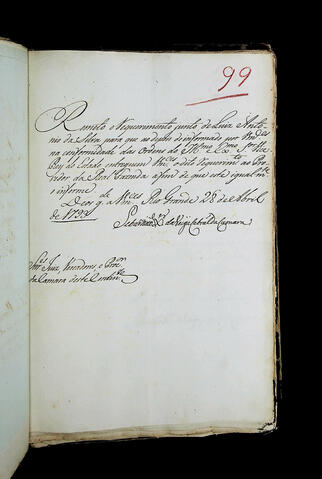 99
Remeto o Requerimento junto de Luiz Anto-
nio da Silva para que ao depois de informado por Vmces
na conformidade das Ordens do Illmo e Exmo Snr Vice
Rey do Estado entreguem Vmces o dito Requerimto ao Pro-
vedor da Real Fazenda afim de que este igualmte
o informe
Deos g. a Vmces Rio Grande 28 de Abril
de 1792
Sebastião Xer da Veiga Cabral da Camara
Snres Juiz, Vereadores, e Procor
da Camara deste Continte